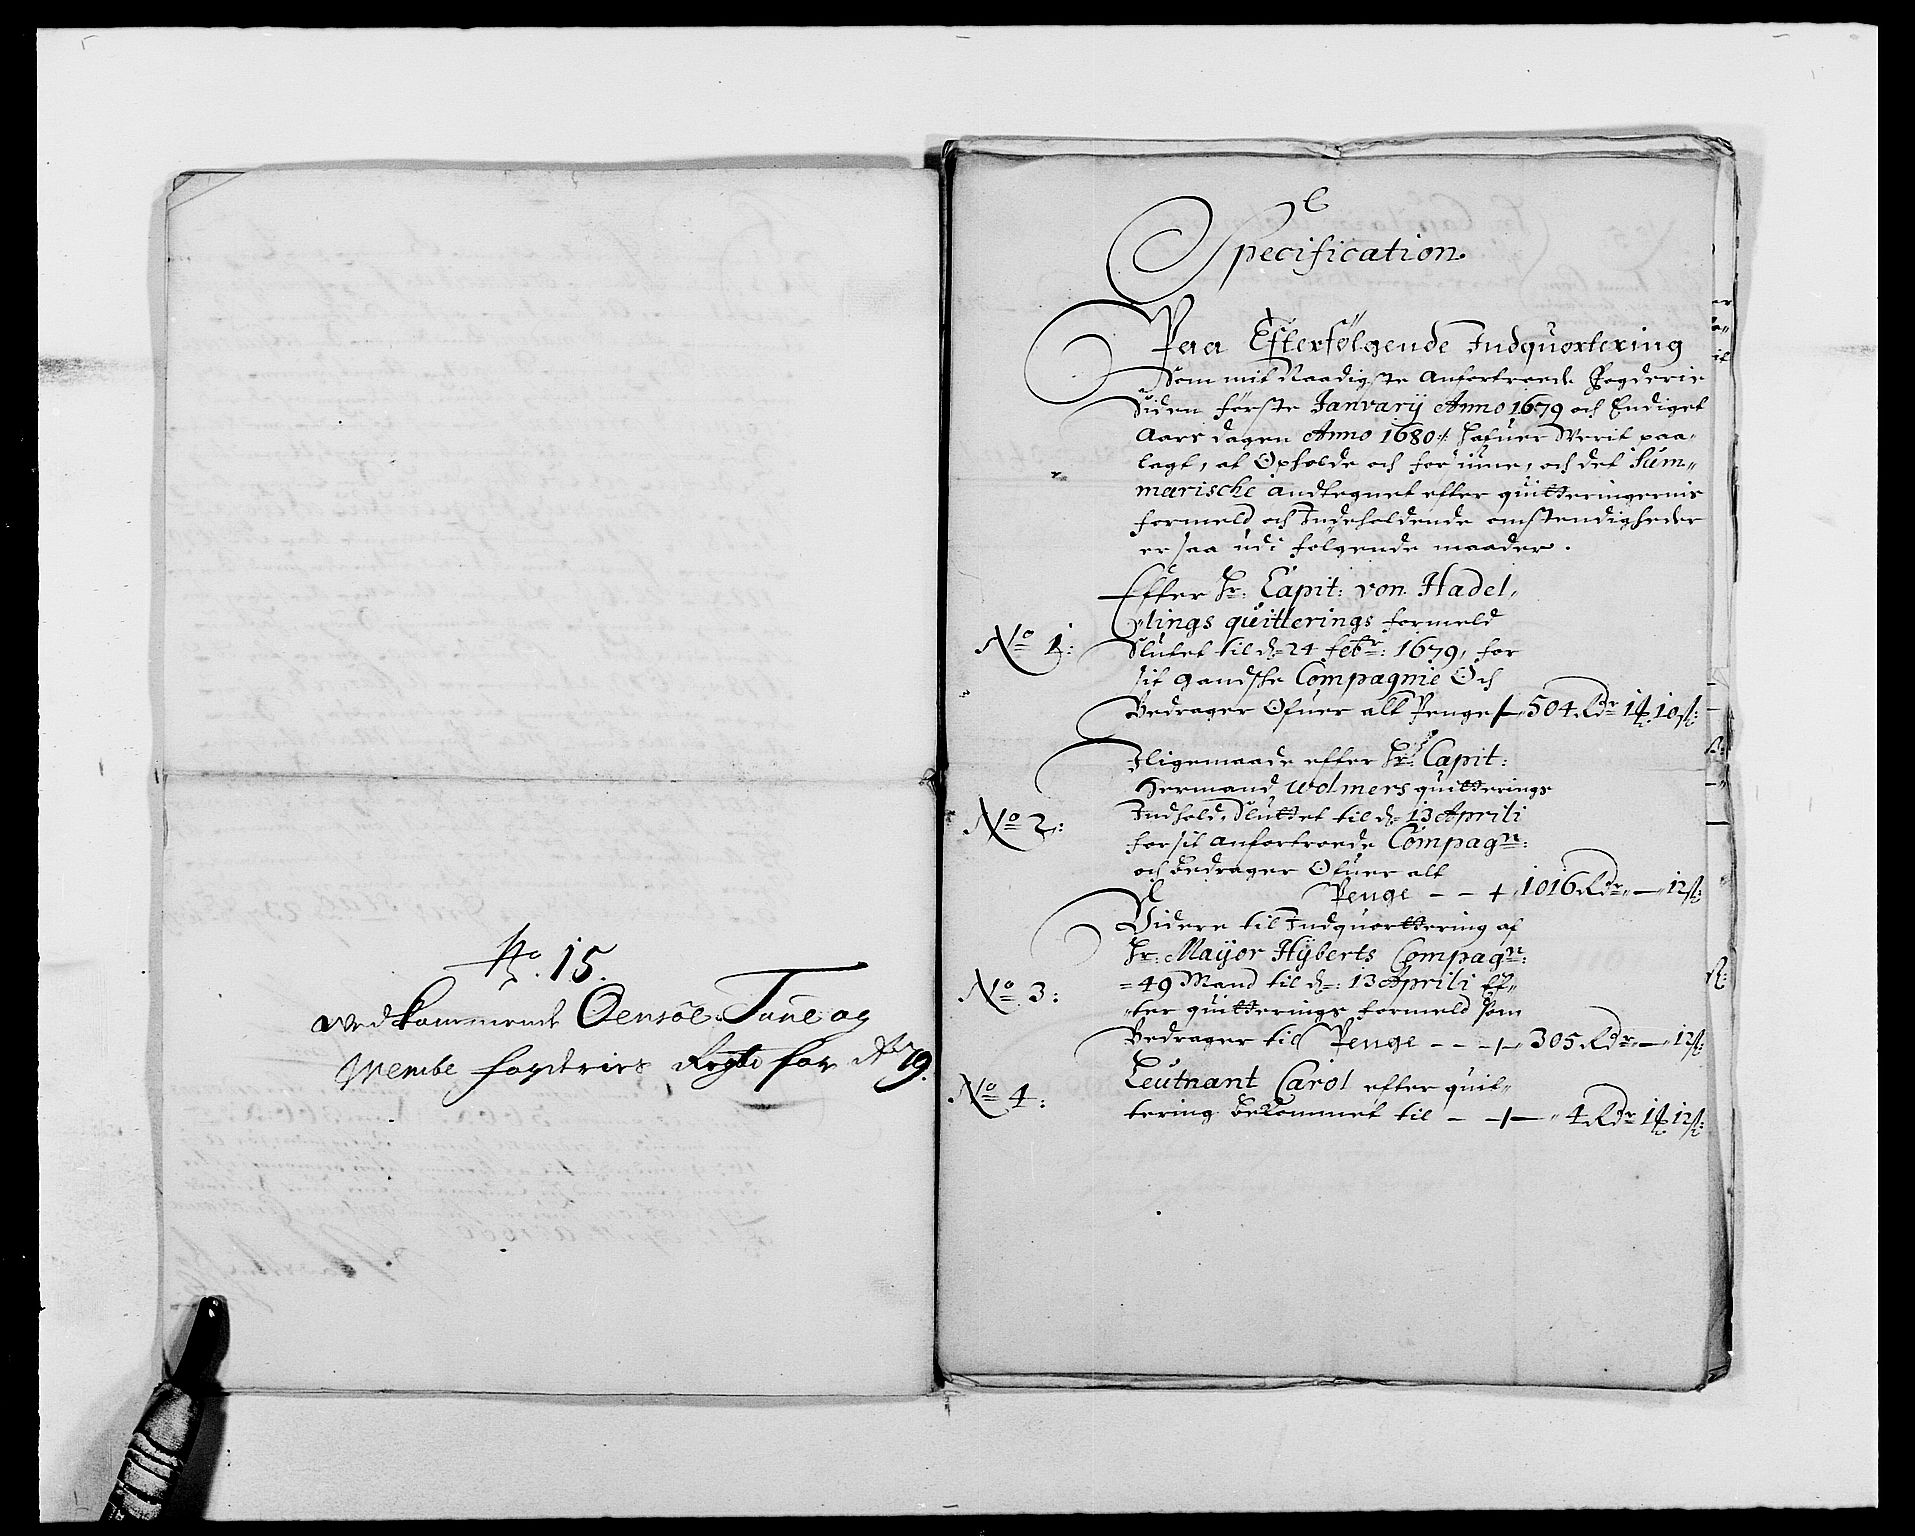 No. 15.
Vedkommende Oensøe Tune og
Wembe fogdries Regsk for Ao 79.
Specification
Paa Efterfølgende Indquortering
Som mit Naadigste Anfortroede Fogderie
Siden første Janvarij Anno 1679 och Endiget
Aars dagen Anno 1680: hafuer Werit paa-
lagt, at Opholde och for, och det Sum-
marische andtegnet efter quitteringernis
formeld och Indeholdende omstendigheder
er saa udi følgende maader.
Efter Hr: Capit: von Hadel,
lings quitterings formeld
No 1: Slutet til d= 24 febr: 1679, for
sit gandske Compagnie Och
Bedrager Ofuer alt Penge 504 Rdr 1 10 s:
Iligemaade efter Hr: Capit:
Hermand Wolmers quitterings
No 2: Indhold, Sluttet til d= 13 Aprili
for sit anfortroede Compagn:
och bedrager Ofuer alt
Penge - - 1016 Rdr - 12 s:
Videre til Indquortering af
Hr: Mayor Hyberts Compagn:
No 3: = 49 Mand til d=: 13 Aprili Ef-
ter quitterings formeld som
Bedrager til Penge - - 305 Rdr - 12 s:
No 4: Leutnant Carol efter quit-
tering bekommet til - - 4 Rdr 1 12 s: